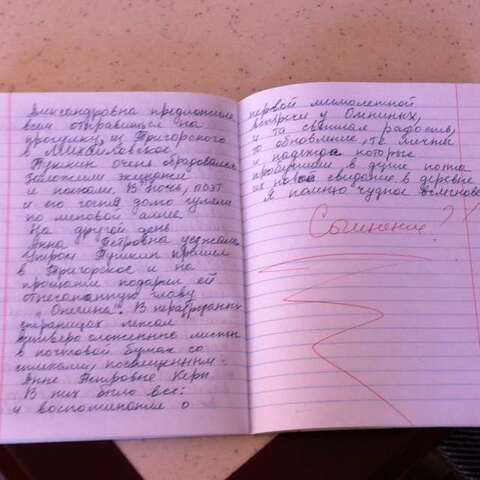 Александровна предложила
всем отправиться на
прогулку, из Тригорского
в Михайловское.
Пушкин очень обрадовался
Заложили экипажи
и поехали. В ночь, поэт
и его гостья долго гуляли
по липовой аллее.
На другой день
Анна Петровна уезжала
Утром Пушкин пришел
в Тригорское и на
прощание подарил ей
отпечатанную главу
"Онегина". В неразрезанных
страницах лежал
вчетверо сложенный листик
в почтовой бумаги со
стихами, посвященными
Анне Петровне Керн
В них было все:
и воспоминание о
первой мимолетной
встречи у Олениных,
и та светлая радость,
то обновление, те
и надежда которые
пробудили в душе поэта
их новой свидание в деревне
Я помню чудное мгновенье
Сочинение?